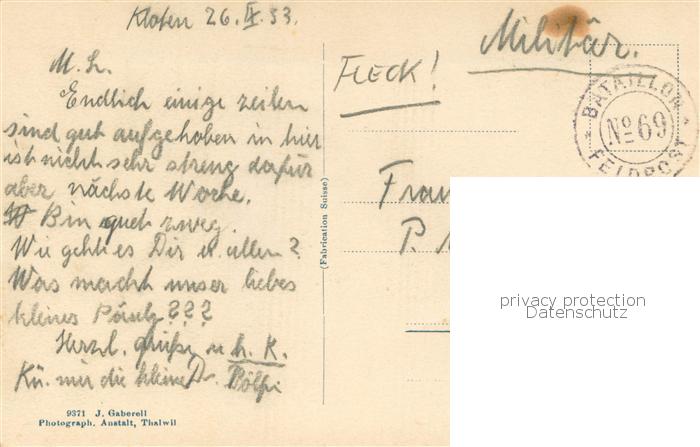 Kloten 26. IX. 33.
M. L.
Endlich einige zeilen
sind gut aufgehoben in hier
ist nicht sehr streng dafür
aber nächste Woche.
Bin gut zweg.
Wie geht es Dir u. allen?
Was macht unser liebes
kleines ???
Herzl. Grüße u. h. K.
Kü. mir die kleine
9371 J. Gaberell
Photograph. Anstalt, Thalwil
(Fabrication Suisse)
FLECK!
Militär.
BATAILLON
No 69
FELDPOST
Frau
P.
privacy protection
Datenschutz